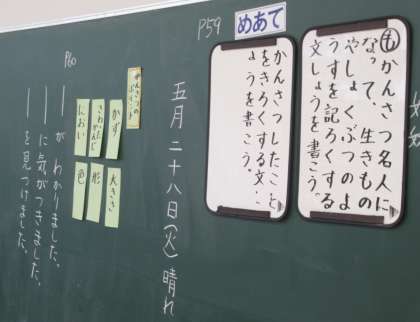 めあて
P59
もかんさつ名人に
なって、生きもの
やしょくぶつのよ
うすを記ろくする
文しょうを書こう。
かんさつしたこと
をきろくする文し
ょうを書こう。
五月二十八日(火)晴れ
かんさつの
かず
大きさ
さわったかんじ
形
におい
色
P60
ーがわかりました。
ーに気がつきました。
ーを見つけました。